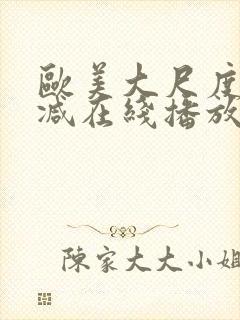 歐美大尺度
減在綫播放
陳家大大小姐